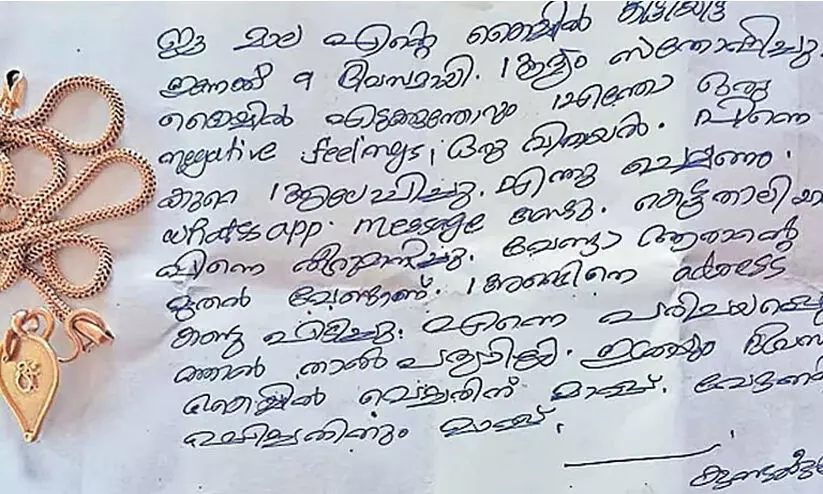 ഈ മാല എന്റെ കൈയ്യിൽ കിട്ടിയിട്ട്
ഇന്നേക്ക് 9 ദിവസമായി. ആദ്യം സന്തോഷിച്ചു.
കൈയ്യിൽ എടുക്കുന്തോറും എന്തോ ഒരു
negative feelings, ഒരു വിറയൽ. പിന്നെ
കുറെ ആലോചിച്ചു. എന്തു ചെയ്യണം.
whatsapp message കണ്ടു. കെട്ടുതാലിയാ
പിന്നെ തീരുമാനിച്ചു. വേണ്ടാ ആരാന്റെ
മുതൽ വേണ്ടാന്ന്. അങ്ങിനെ adress
കണ്ടു പിടിച്ചു. എന്നെ പരിചയപ്പെടു
ത്താൻ താൽപര്യമില്ല. ഇത്രയും ദിവസം
കൈയ്യിൽ വെച്ചതിന് മാപ്പ്. വേദനി
പ്പിച്ചതിനും മാപ്പ്.